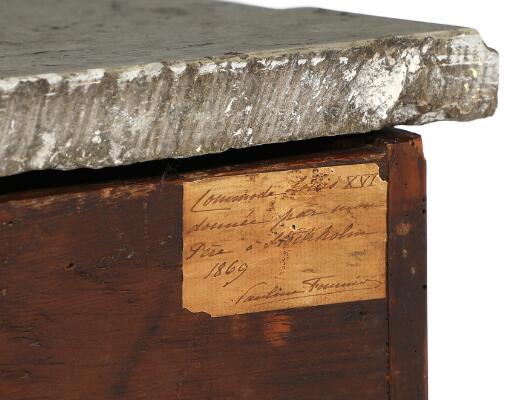 Commode Louis XVI
donnée par mon
Père à Stockholm
1869
Pauline Fournier